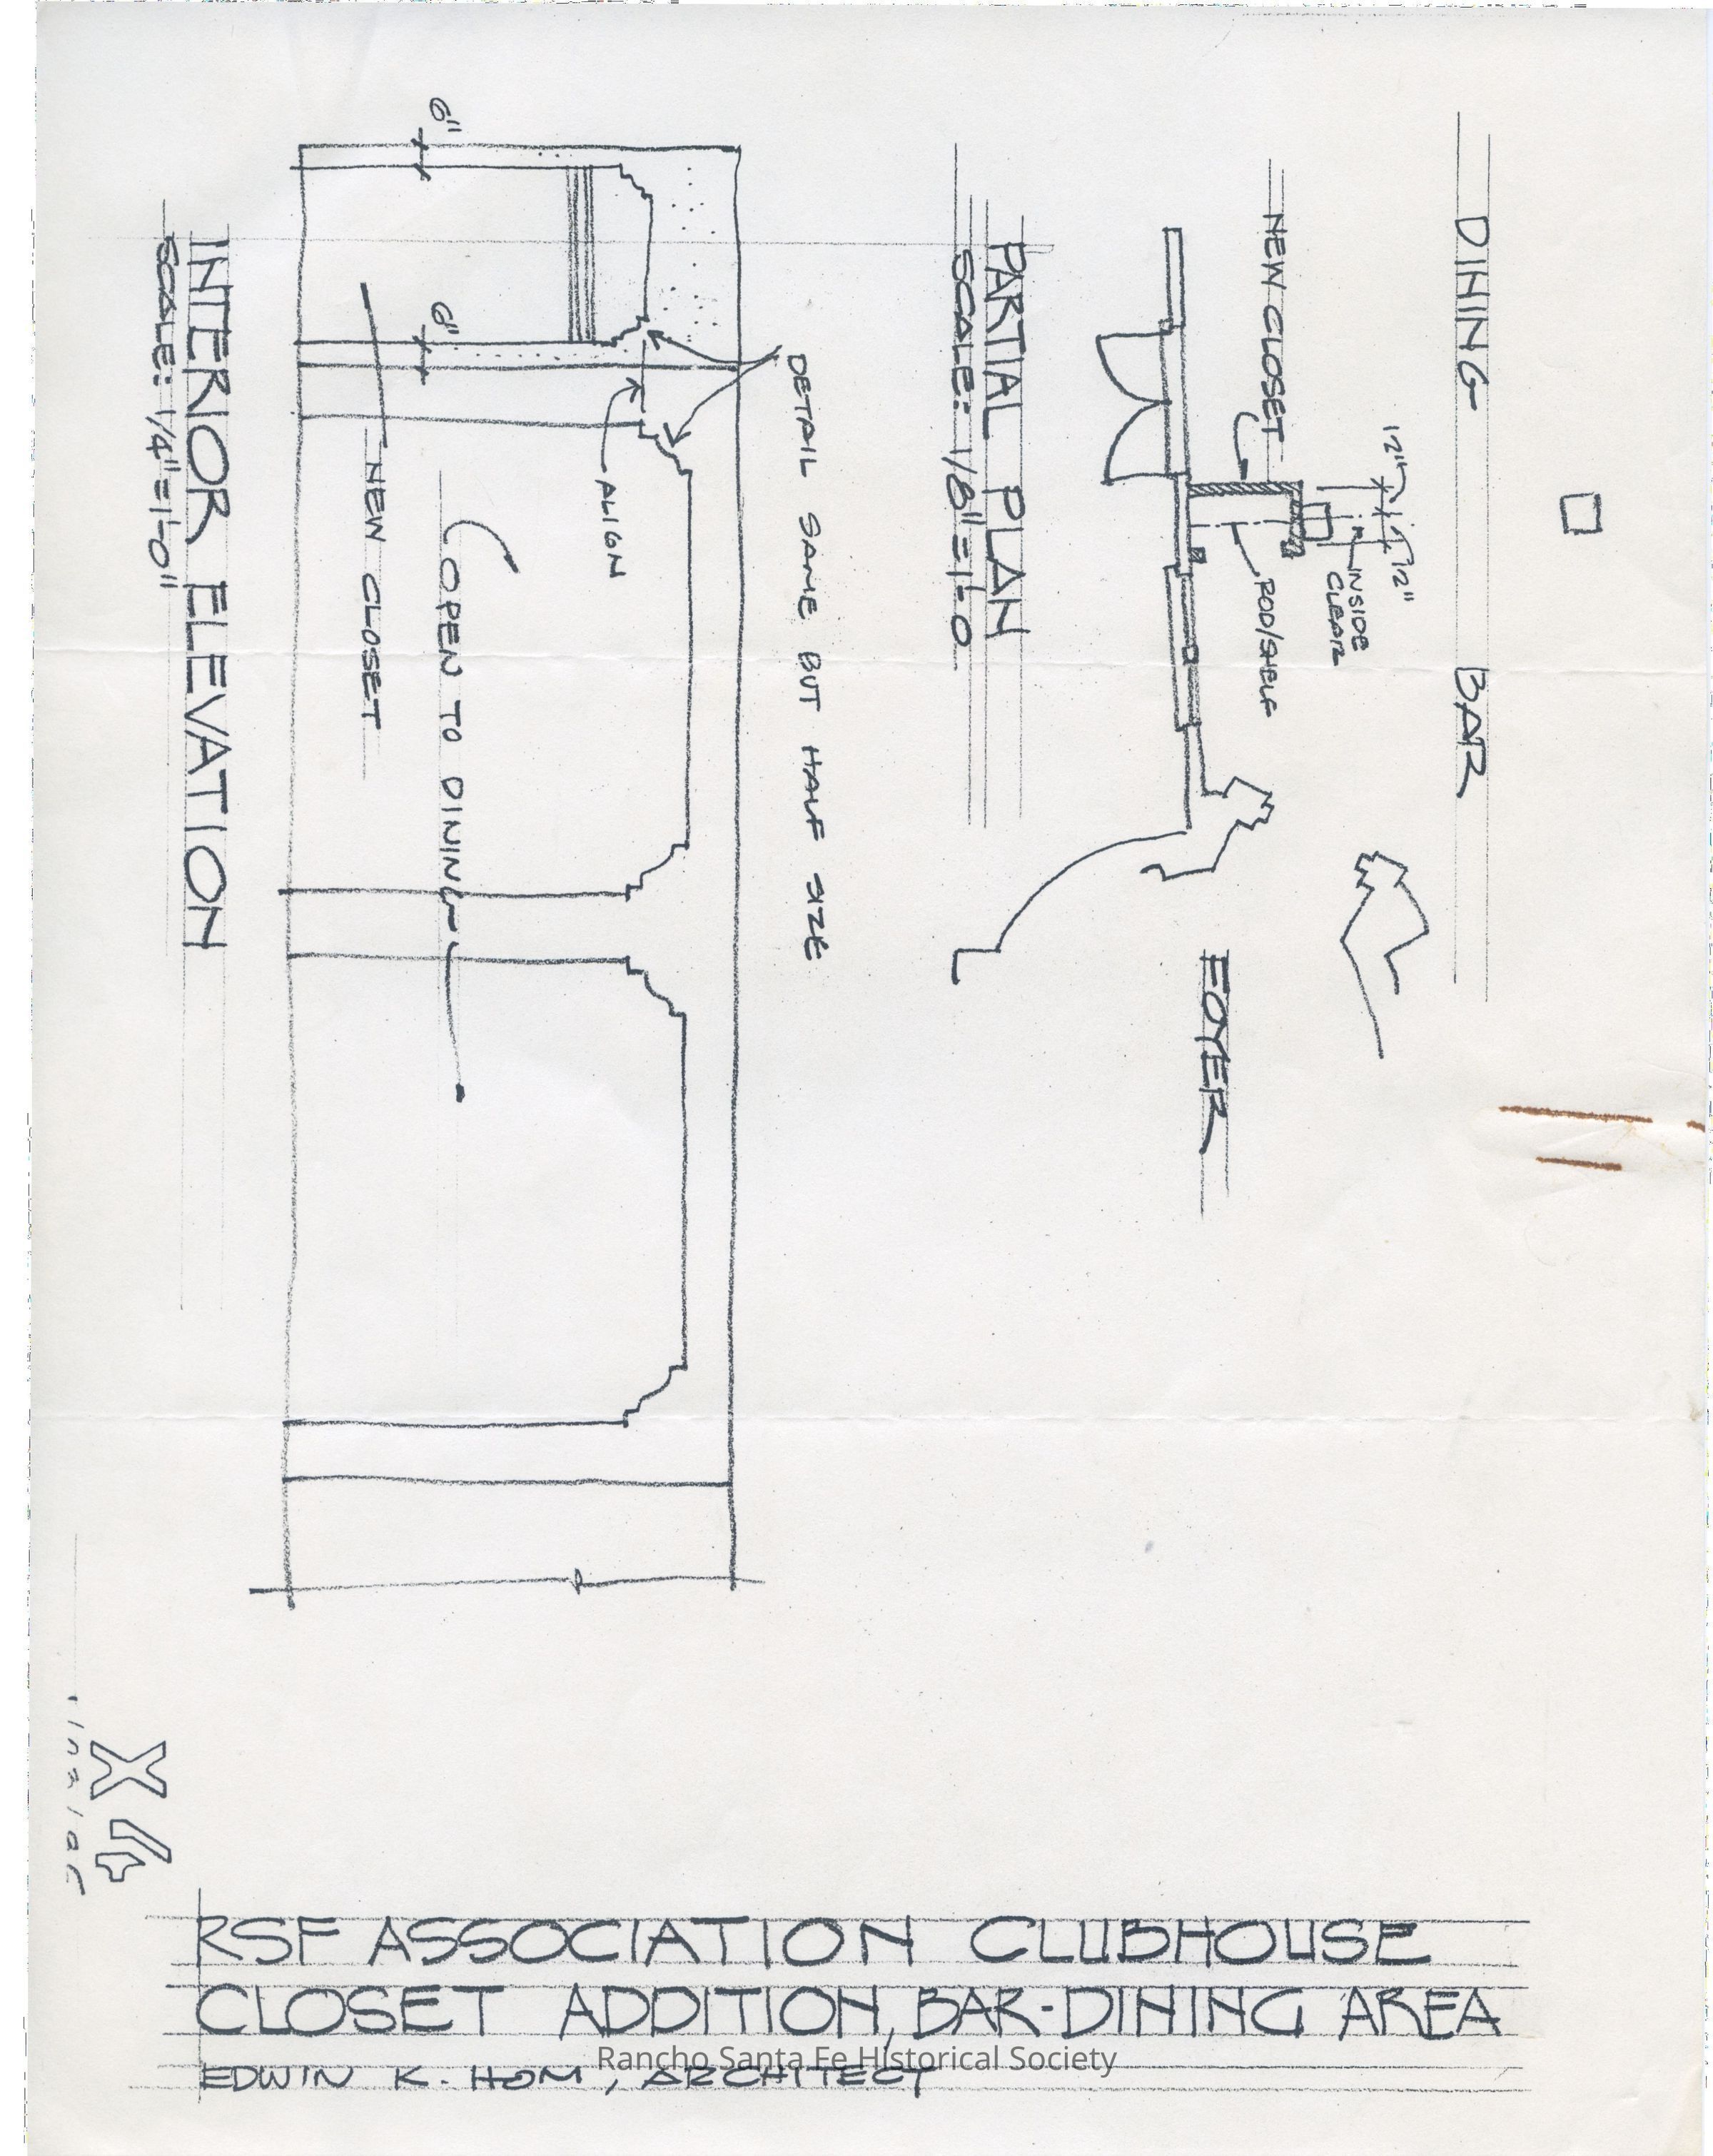 DINING
BAR
NEW CLOSET
12"
12"
INSIDE
CLEAR
ROD/SHELF
FOYER
PARTIAL PLAN
SCALE: 1/8"=1'-0
DETAIL SAME BUT HALF SIZE
ALIGN
6"
6"
OPEN TO DINING
NEW CLOSET
INTERIOR ELEVATION
SCALE: 1/4"=1'-0"
RSF ASSOCIATION CLUBHOUSE
CLOSET ADDITION, BAR-DINING AREA
EDWIN K. HOM, ARCHITECT
Rancho Santa Fe Historical Society